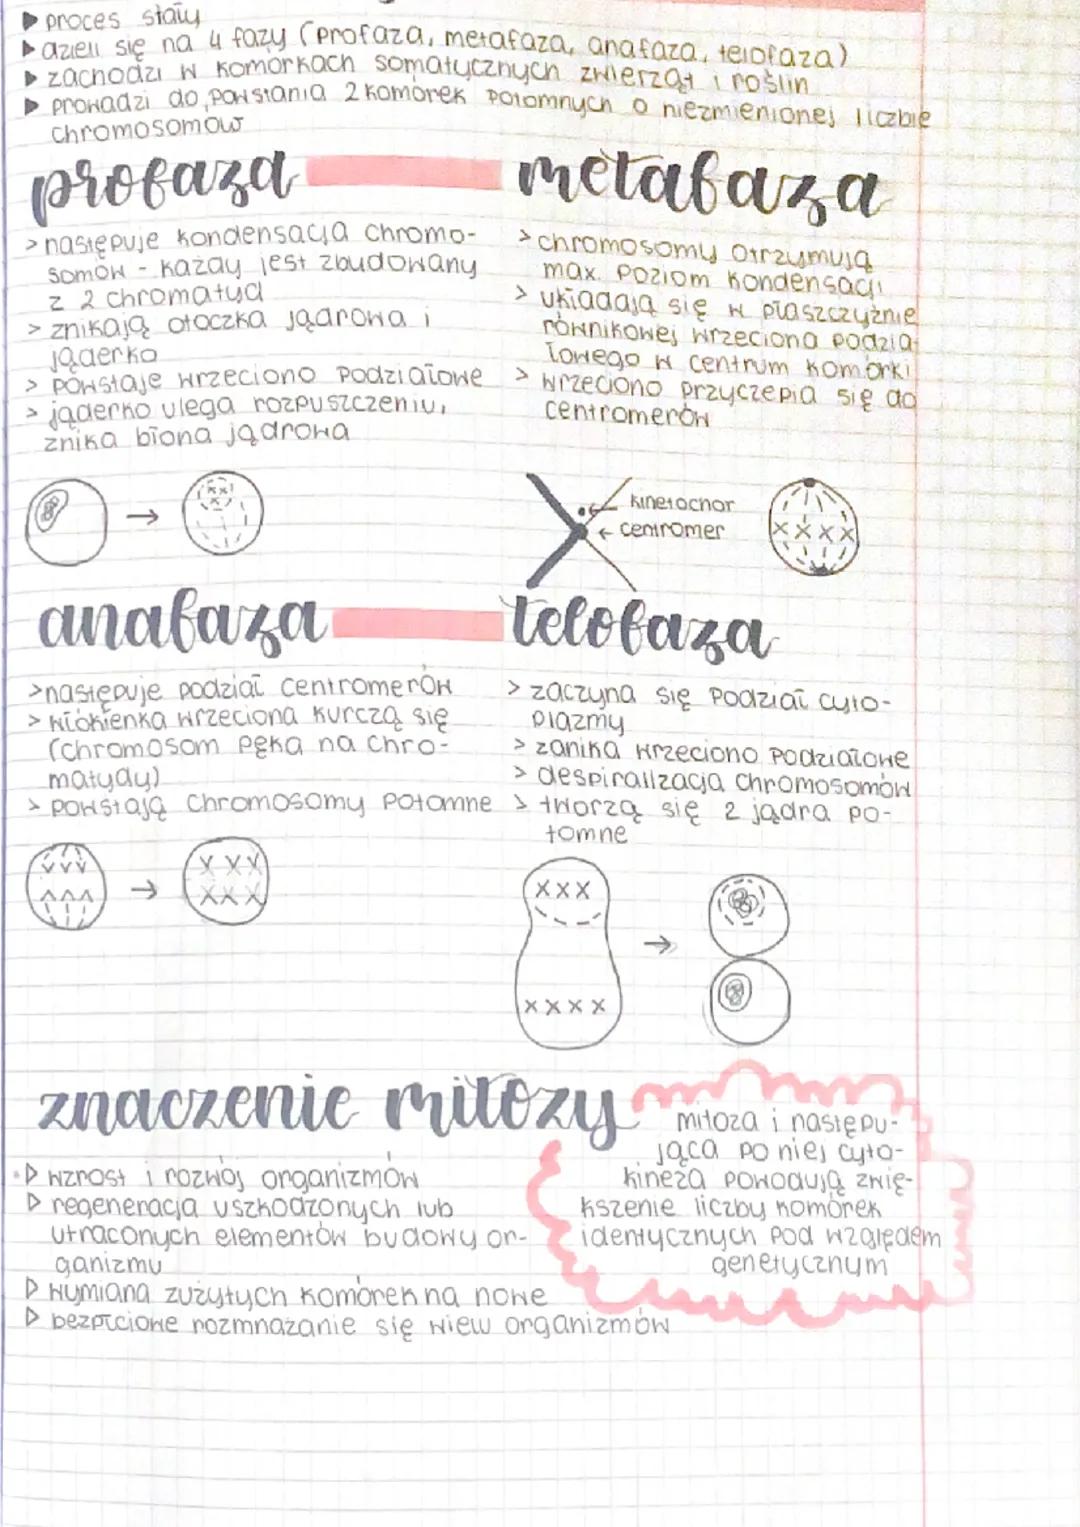 proces stały
dzieli się na 4 fazy (profaza, metafaza, anafaza, telofaza)
zachodzi w komórkach somatycznych zwierząt i roślin
prowadzi do powstania 2 komórek potomnych o niezmienionej liczbie
chromosomów
profaza
> następuje kondensacja chromo-
somów - każdy jest zbudowany
z 2 chromatyd
> znikają otoczka jądrowa i
jąderko
> powstaje wrzeciono podziałowe
> jąderko ulega rozpuszczeniu,
znika błona jądrowa
metafaza
> chromosomy otrzymują
max. poziom kondensacji
> układają się w płaszczyźnie
równikowej wrzeciona podzia
łowego w centrum komórki
> wrzeciono przyczepia się do
centromerów
kinetochor
centromer
anafaza
> następuje podział centromerów
> włókienka wrzeciona kurczą się
(chromosom pęka na chro-
matydy)
> powstają chromosomy potomne
telofaza
> zaczyna się podział cyto-
plazmy
> zanika wrzeciono podziałowe
> despiralizacja chromosomów
> tworzą się 2 jądra po-
tomne
znaczenie mitozy
wzrost i rozwój organizmów
regeneracja uszkodzonych lub
utraconych elementów budowy or-
ganizmu
wymiana zużytych komórek na nowe
bezpłciowe rozmnażanie się wielu organizmów
mitoza i następu-
jąca po niej cyto-
kineza powodują zwię-
kszenie liczby komórek
identycznych pod względem
genetycznym